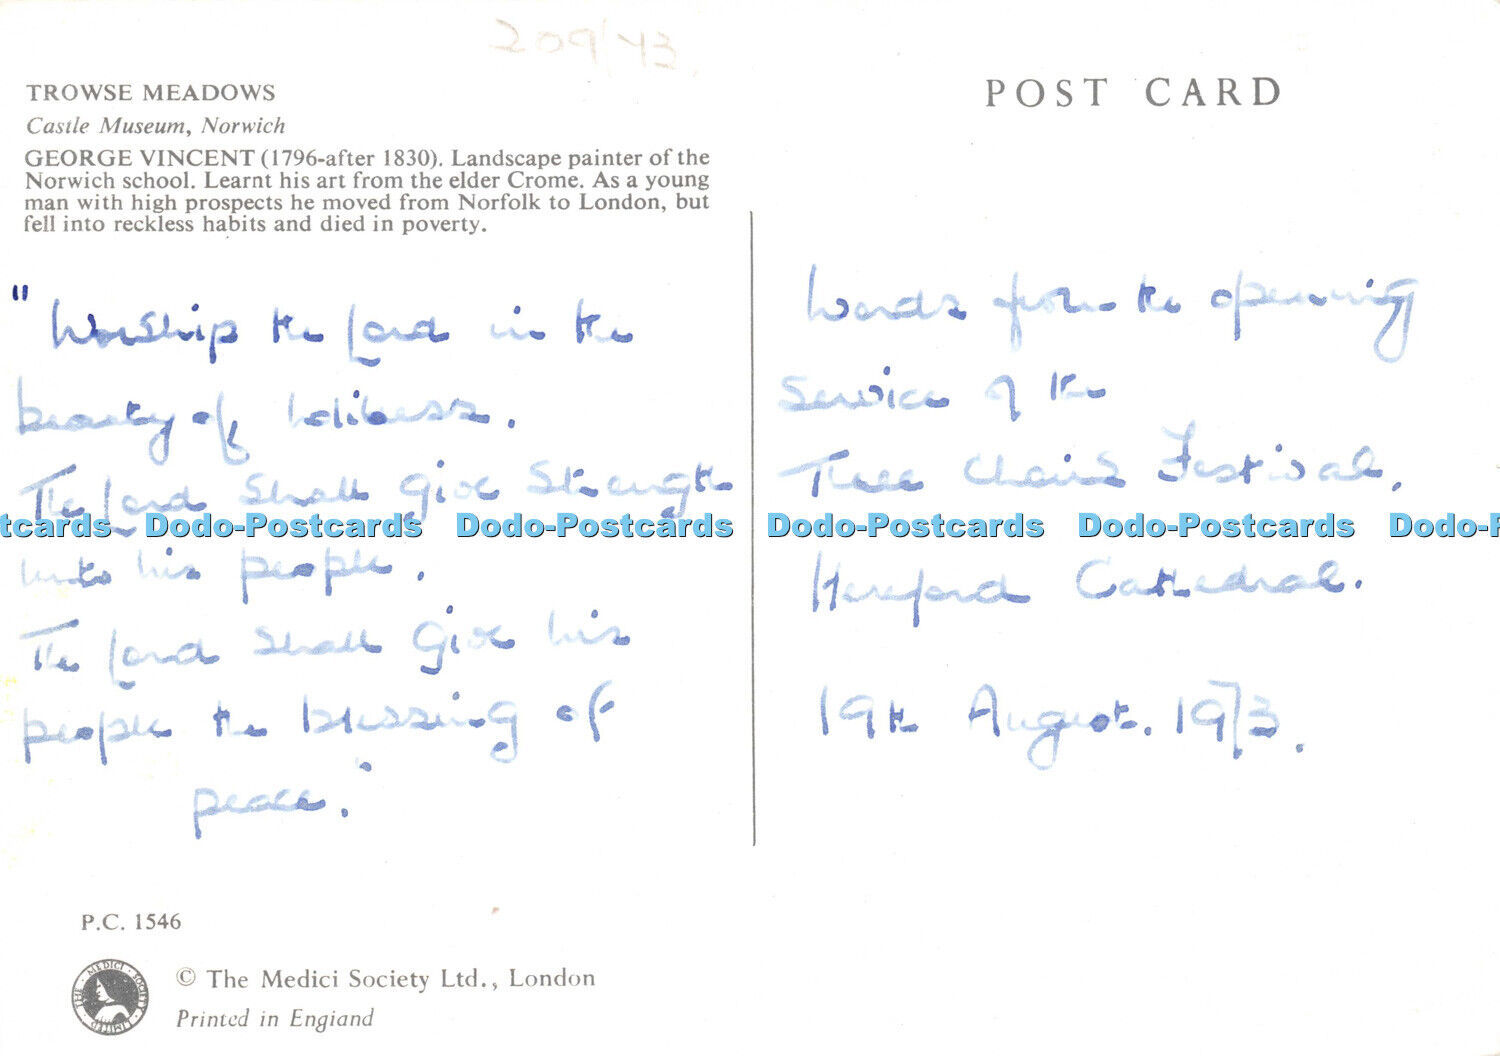 209/43.
TROWSE MEADOWS
Castle Museum, Norwich
GEORGE VINCENT (1796-after 1830). Landscape painter of the
Norwich school. Learnt his art from the elder Crome. As a young
man with high prospects he moved from Norfolk to London, but
fell into reckless habits and died in poverty.
"Worship the Lord in the
beauty of holiness.
The Lord shall give strength
unto his people.
The Lord shall give his
people the blessing of
peace."
P.C. 1546
THE · MEDICI · SOCIETY · LIMITED
© The Medici Society Ltd., London
Printed in England
POST CARD
Words from the opening
Service of the
Three Choirs Festival,
Hereford Cathedral.
19th August. 1973.
tcards Dodo-Postcards Dodo-Postcards Dodo-Postcards Dodo-Postcards Dodo-P